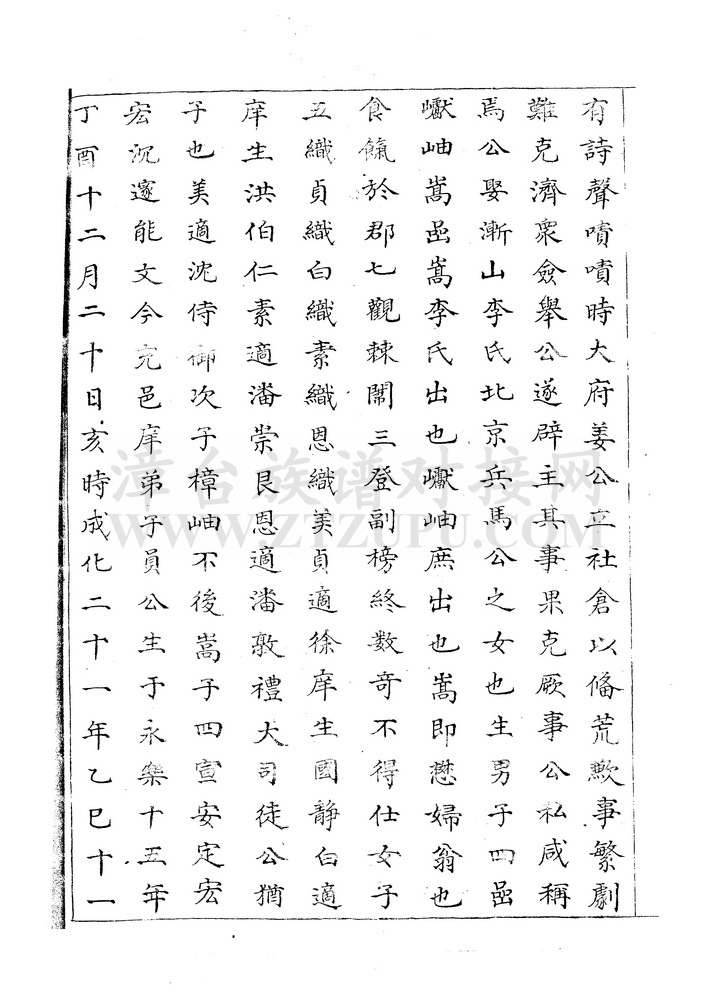 有詩聲嘖嘖時大府姜公立社倉以俻荒歉事繁劇
難克濟衆僉舉公遂辟主其事果克厥事公私咸稱
焉公娶漸山李氏北京兵馬公之女也生男子四嵒
巘岫嵩嵒嵩李氏出也巘岫庶出也嵩即懋婦翁也
食餼於郡七觀棘闈三登副榜終数奇不得仕女子
五織貞織白織素織恩織美貞適徐庠生國靜白適
庠生洪伯仁素適潘崇艮恩適潘敦禮大司徒公猶
子也美適沈侍御次子樟岫不後嵩子四宣安定宏
宏沉邃能文今充邑庠弟子員公生于永樂十五年
丁酉十二月二十日亥時成化二十一年乙巳十一
漳台族谱对接网
WWW.ZTZUPU.COM